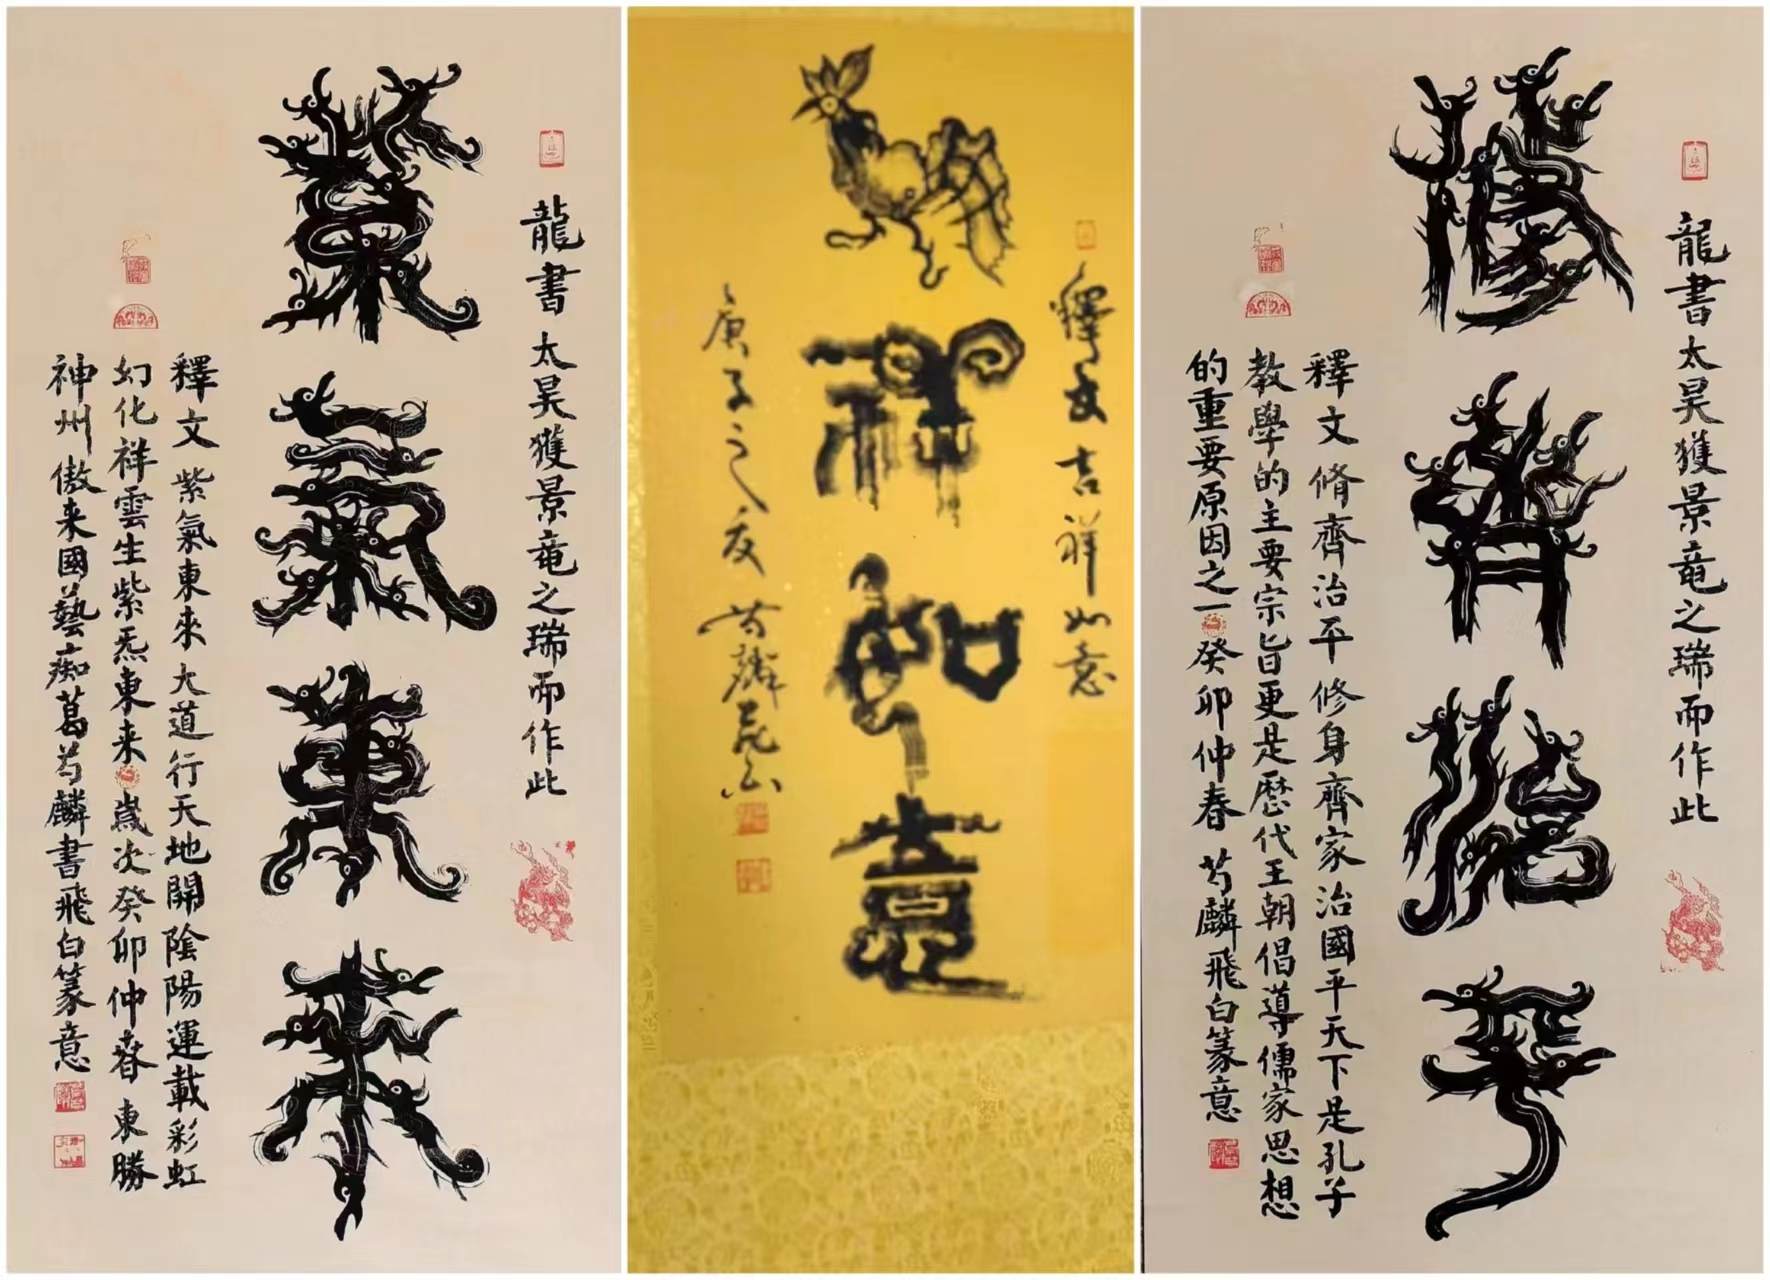 龍書太昊獲景竜之瑞而作此
紫氣東來
釋文紫氣東來大道行天地開陰陽運載彩虹
幻化祥雲生紫炁東来歲次癸卯仲春東勝
神州傲来國藝痴葛芍麟書飛白篆意
釋文吉祥如意
吉祥如意
庚子之夏芍麟昆山
龍書太昊獲景竜之瑞而作此
脩齊治平
釋文脩齊治平修身齊家治國平天下是孔子
教學的主要宗旨更是歷代王朝倡導儒家思想
的重要原因之一癸卯仲春芍麟飛白篆意